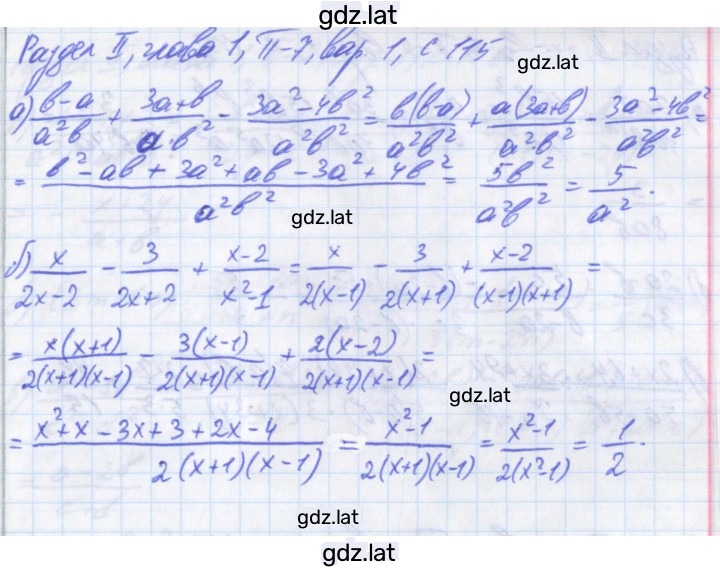 gdz.lat
Раздел II, глава 1, П-7, вар. 1, с. 115
gdz.lat
а) (в-а)/(а²в) + (3а+в)/(а·в²) - (3а²-4в²)/(а²в²) = (в(в-а))/(а²в²) + (а(3а+в))/(а²в²) - (3а²-4в²)/(а²в²) =
= (в²-ав+3а²+ав-3а²+4в²)/(а²в²) = (5в²)/(а²в²) = 5/а².
gdz.lat
б) x/(2x-2) - 3/(2x+2) + (x-2)/(x²-1) = x/(2(x-1)) - 3/(2(x+1)) + (x-2)/((x-1)(x+1)) =
= (x(x+1))/(2(x+1)(x-1)) - (3(x-1))/(2(x+1)(x-1)) + (2(x-2))/(2(x+1)(x-1)) =
gdz.lat
= (x²+x-3x+3+2x-4)/(2(x+1)(x-1)) = (x²-1)/(2(x+1)(x-1)) = (x²-1)/(2(x²-1)) = 1/2.
gdz.lat
gdz.lat